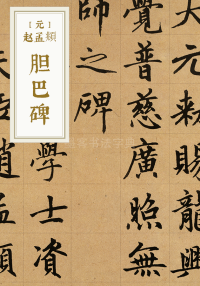 [元]
赵孟頫
胆巴碑
大元敕賜龍興
覺普慈廣照無
師之碑
學士資
夫臣趙孟頫